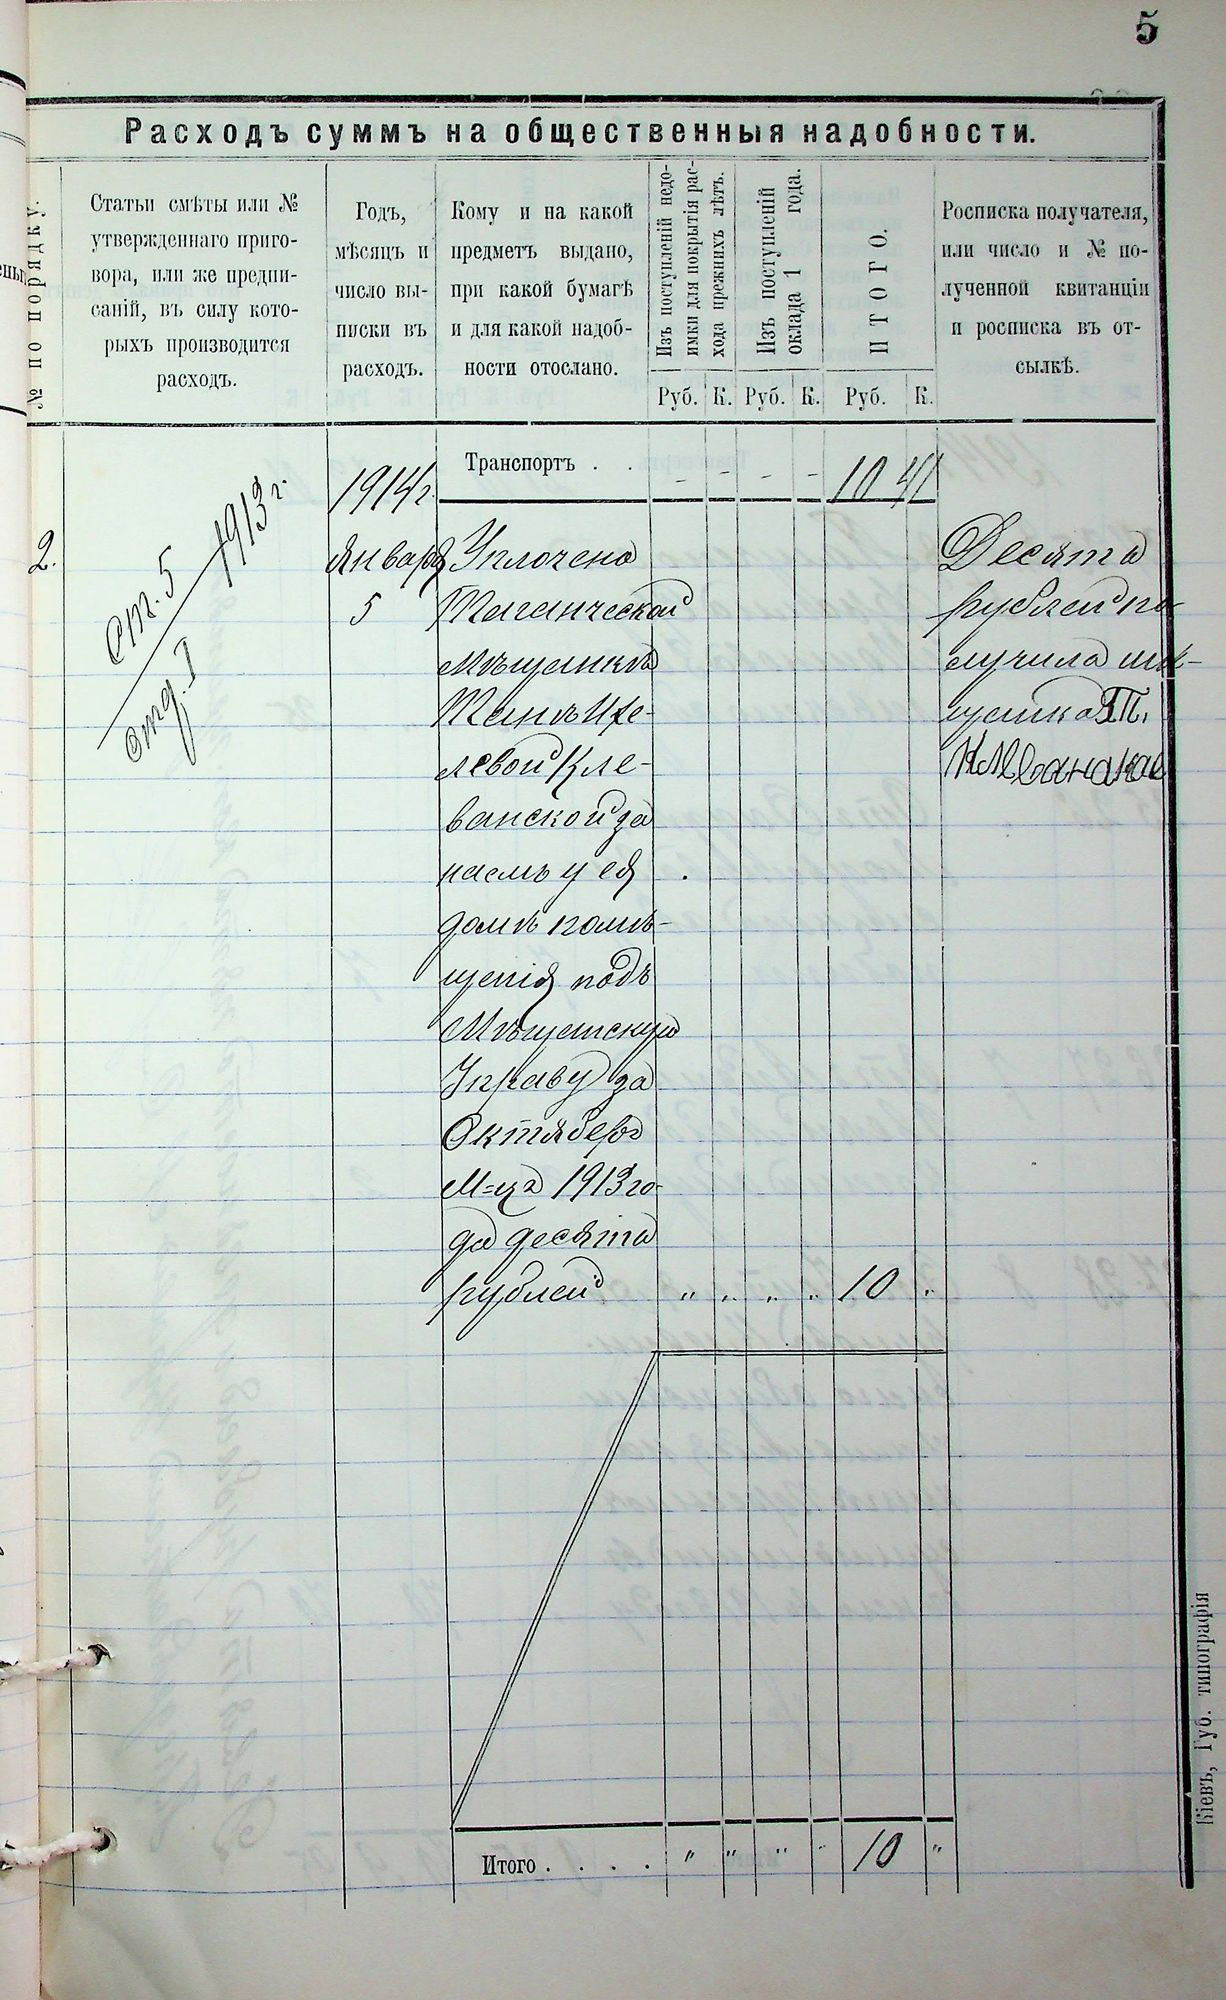 5
Расходъ суммъ на общественныя надобности.
№ по порядку.
Статьи смѣты или №
утвержденнаго приго-
вора, или же предпи-
саній, въ силу кото-
рыхъ производится
расходъ.
Годъ,
мѣсяцъ и
число вы-
писки въ
расходъ.
Кому и на какой
предметъ выдано,
при какой бумагѣ
и для какой надоб-
ности отослано.
Изъ поступленій недо-
имки для покрытія рас-
хода прежнихъ лѣтъ.
Изъ поступленій
оклада 1 года.
ИТОГО.
Росписка получателя,
или число и № по-
лученной квитанціи
и росписка въ от-
сылкѣ.
Руб. К. Руб. К. Руб. К.
Транспортъ . . - - - - 10 41
2.
ст. 5
отд. I
1913 г.
1914 г.
Января
5
Уплочено
Таганческой
мѣщанкѣ
левой Кле-
ванской за
наемъ у ея
домѣ помѣ-
щенія подъ
Мѣщанскую
Управу за
Октяберь
М-ца 1913 го-
да десять
рублей " " " " 10 "
Десять
рублей по-
лучила мѣ-
щанка
Клеванская
Итого . . . . " " " " 10 "
Кіевъ, Губ. типографія